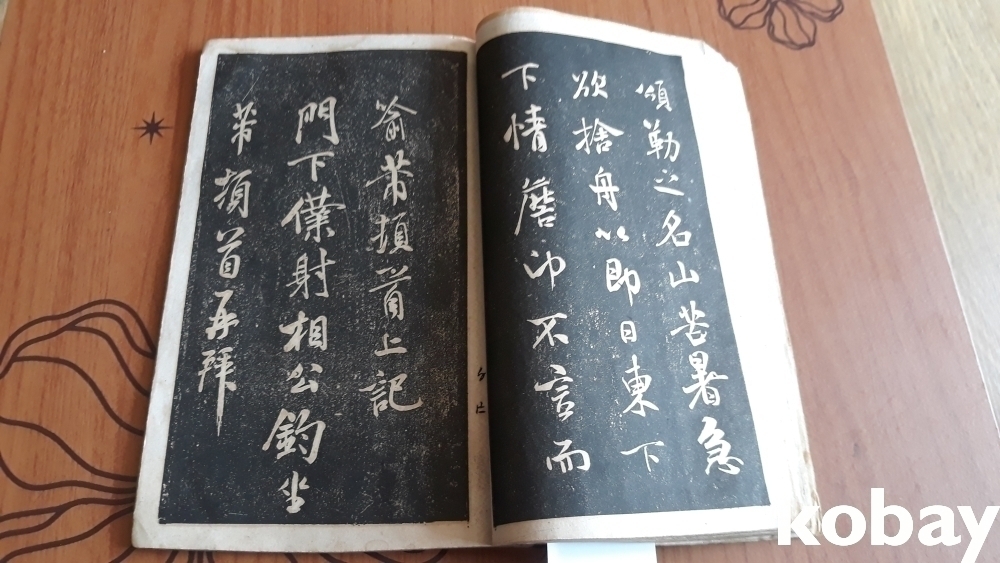 頌勒之名山苦暑急
欲捨舟以即日東下
下情仰不宣而
俞芾頓首上記
門下僕射相公鈞坐
芾頓首再拜
kobay